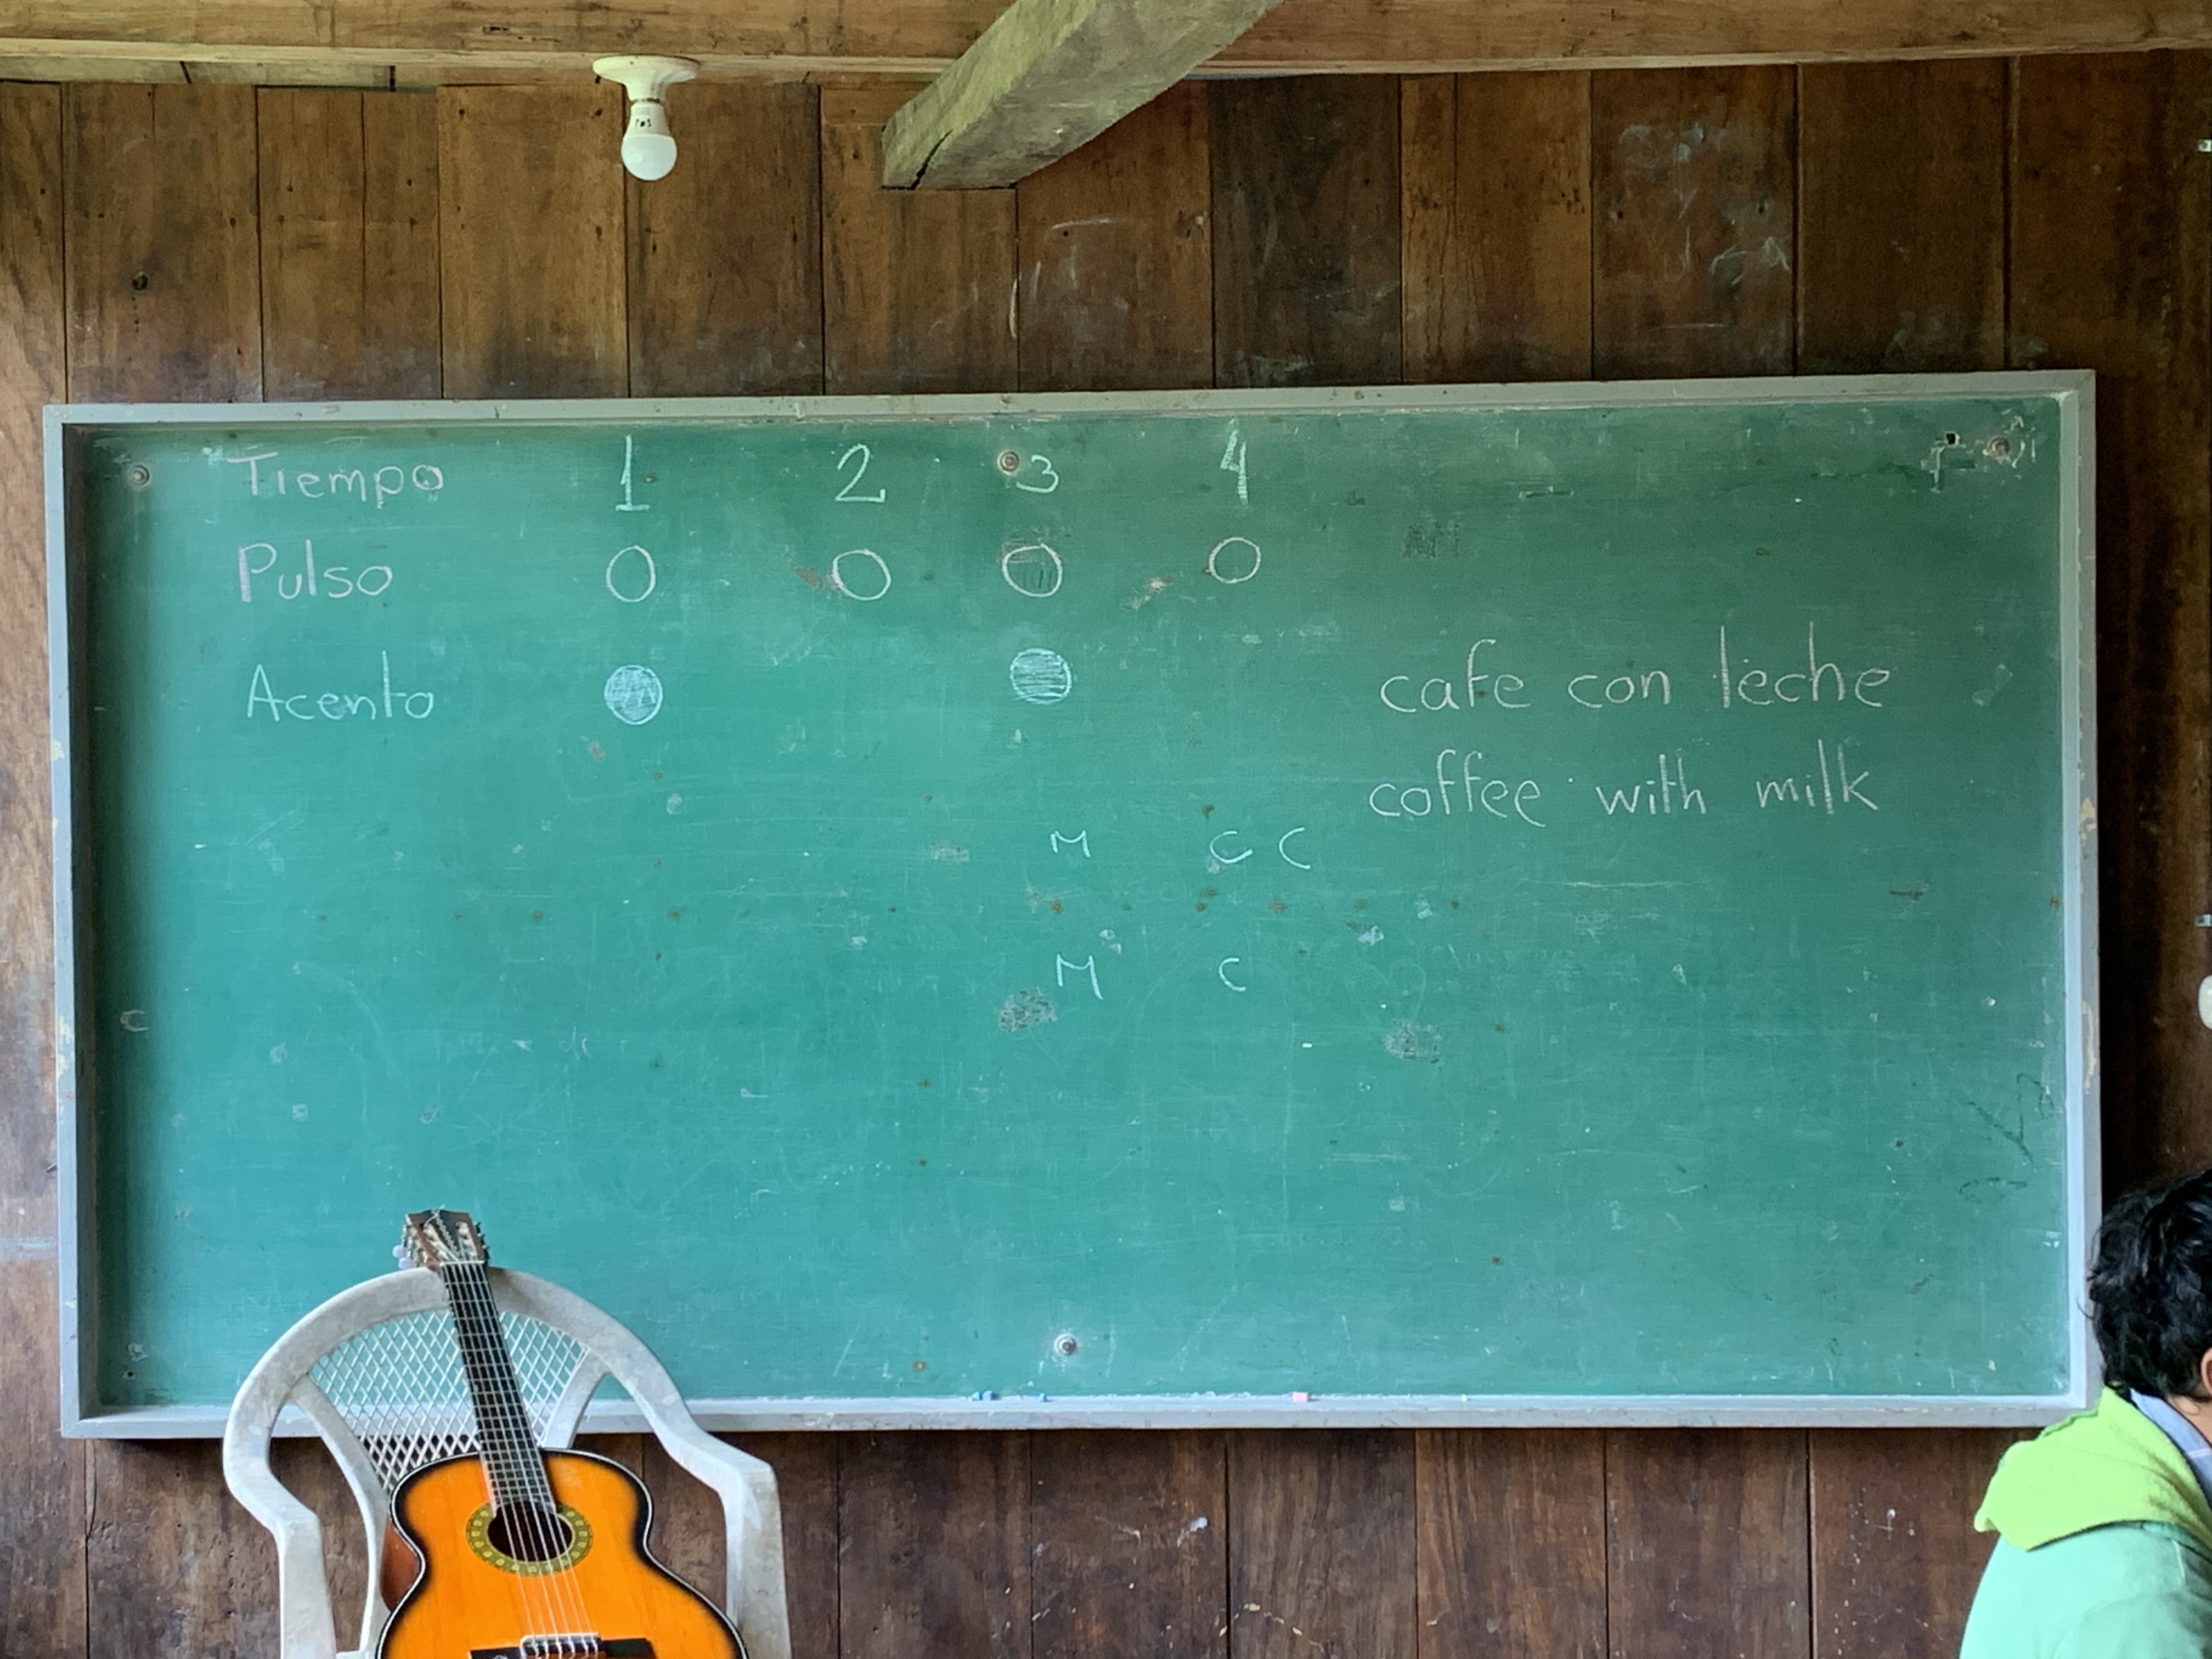 Tiempo 1 2 3 4
Pulso O O O O
Acento
cafe con leche
coffee with milk
M C C
M C